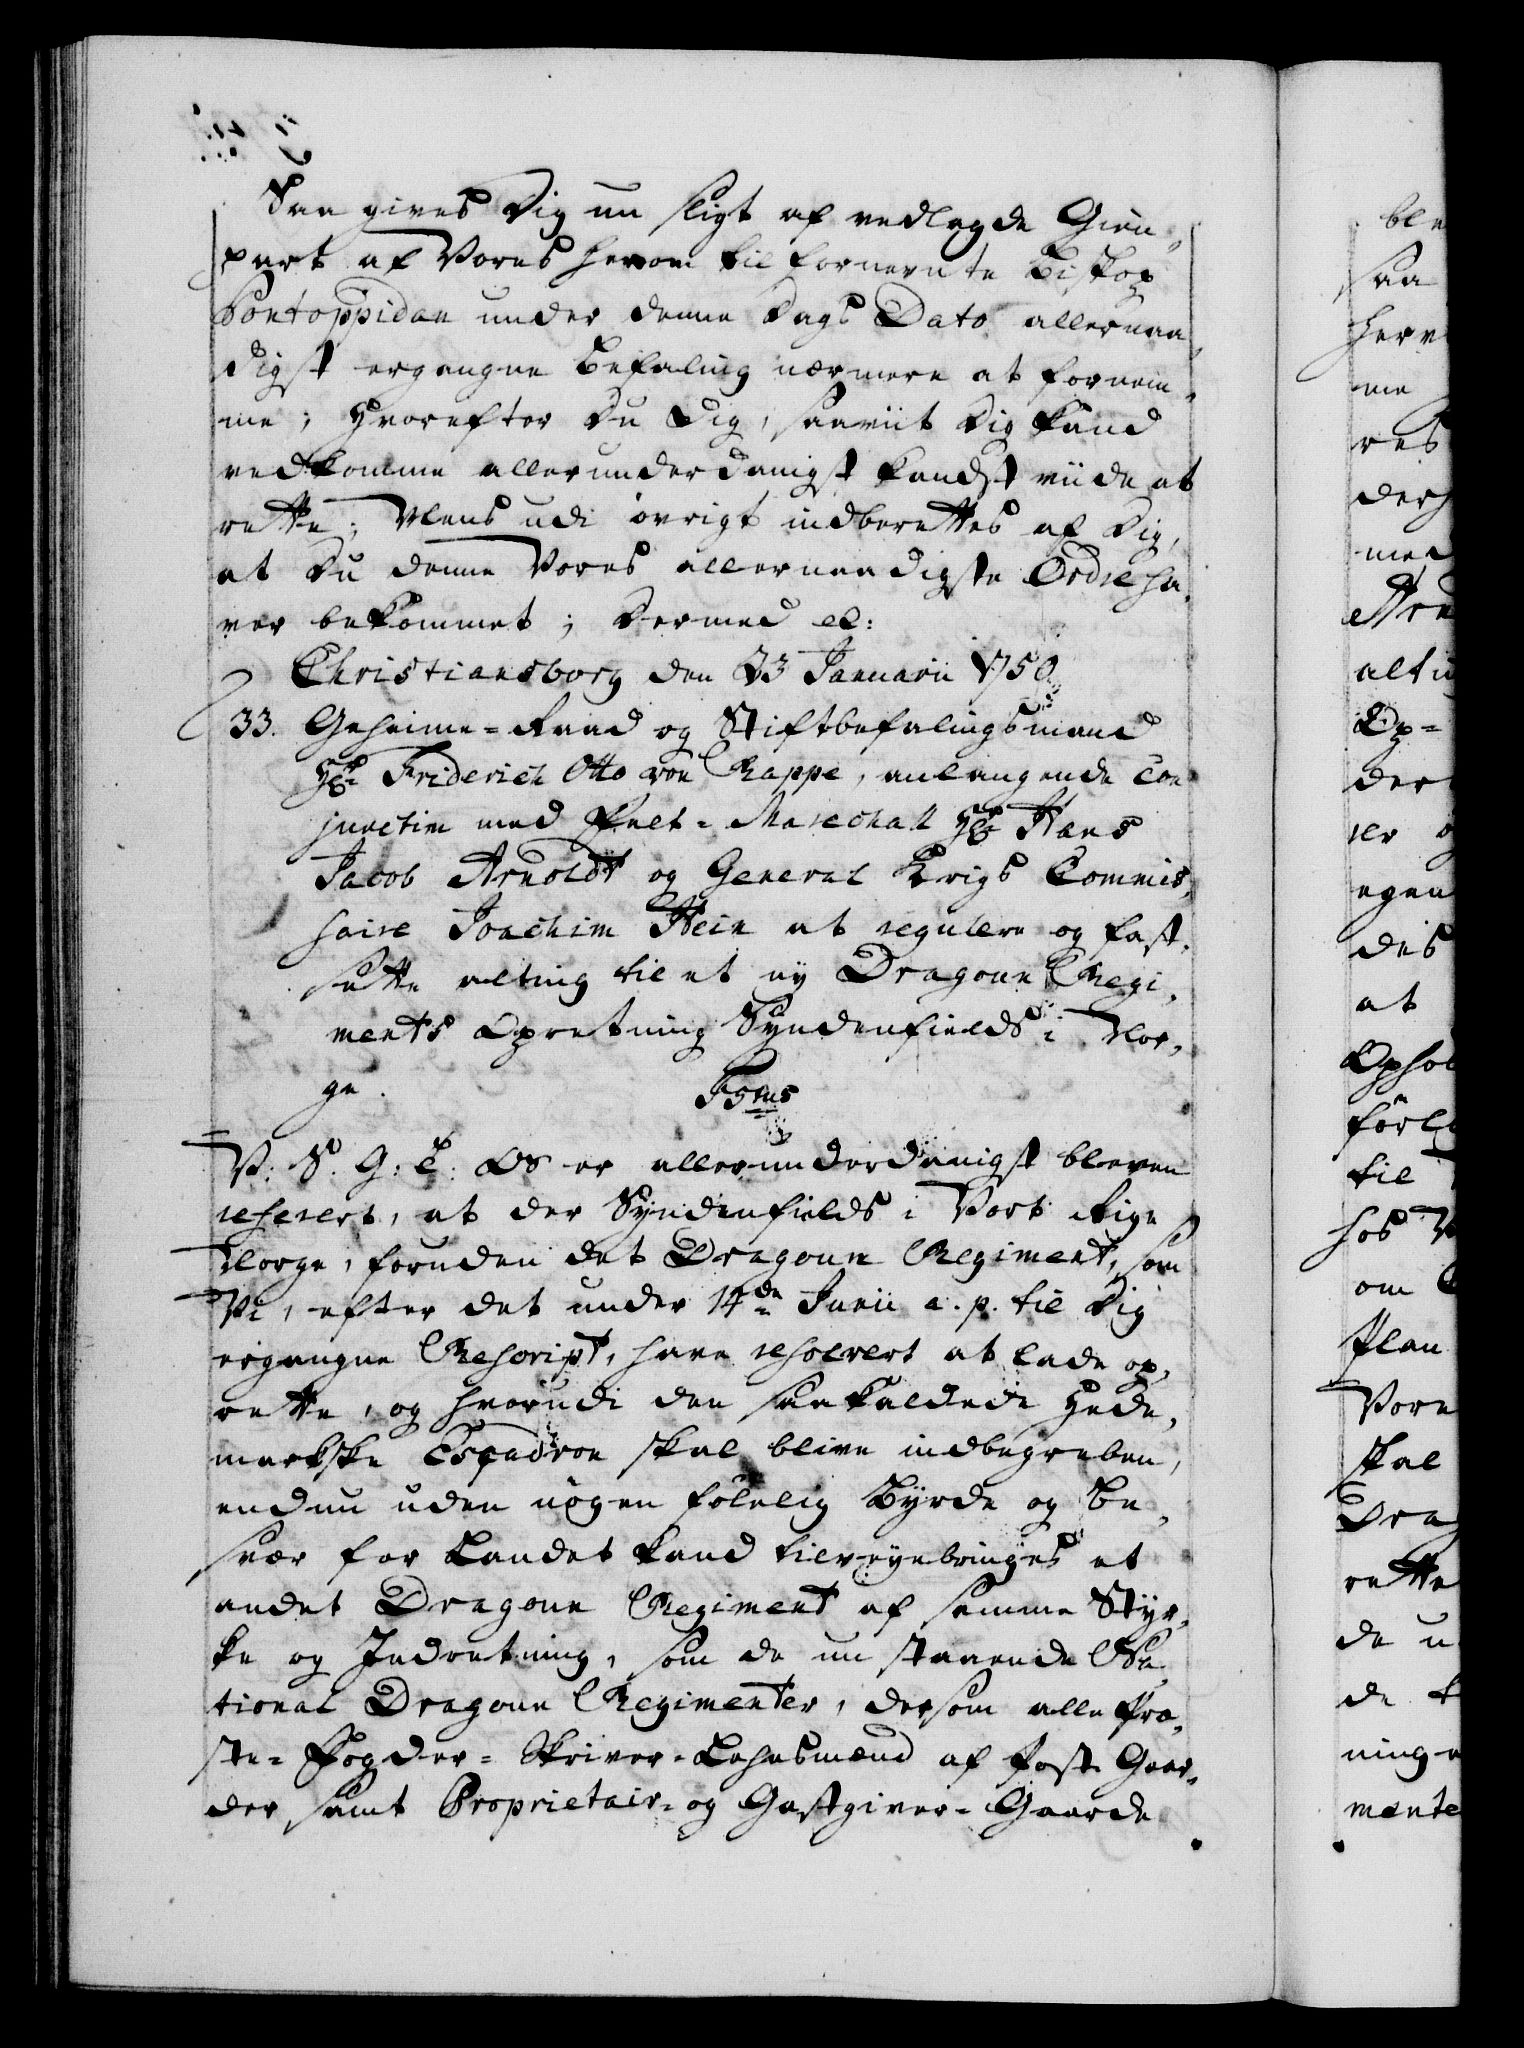 Saa gives Dig nu sligt af vedlagde Gien-
part af Vores herom til fornevnte Biskop
Pontoppidan under denne Dags Dato allernaa-
digst ergangne Befaling nærmere at fornem-
me; Hvorefter Du Dig, saaviit Dig kand
vedkomme allerunderdanigst kandst viide at
rette; Mens udi övrigt indberettes af Dig,
at Du denne Vores allernaadigste Ordre ha-
ver bekommet; Dermed etc:
Christiansborg den 23 Januarii 1750
33. Geheime-Raad og Stiftbefalingsmand
Hr. Friderich Otto von Rappe, anlangende Con
junctim med Felt-Marechall Hr Hans
Jacob Arnoldt og General Krigs Commis-
saire Joachim Hein at regulere og fast-
sætte alting til et ny Dragoun Regi-
ments Opretning Syndenfields i Nor-
ge.
F5tus
V: S. G: T: Os er allerunderdanigst bleven
referert, at der Syndenfields i Vort Rige
Norge, foruden det Dragoun Regiment, som
Vi, efter det under 14de Junii a. p. til Dig
ergangne Rescript, have resolvert at lade op-
rette, og hvorudi den saakaldede Hede-
markske Esqvadron skal blive indbegreben,
endnu uden nogen fölelig Byrde og Be-
svær for Landet kand tilveyebringes et
andet Dragoun Regiment af samme Styr-
ke og Indretning, som de nu staaende Na-
tional Dragoun Regimenter, dersom alle Præ-
ste- Fogder- Skriver- Lehnsmænd af Post Gaar-
der, samt Proprietair- og Gastgiver- Gaarde
ble
saa
herv
me
res
ders
med
Arn
altii
Op-
der
ler o
egen
des
at
Ophol
förl
til
hos V
om
Plan
Vore
skal
Drag
rette
de u
de t
ning
mente